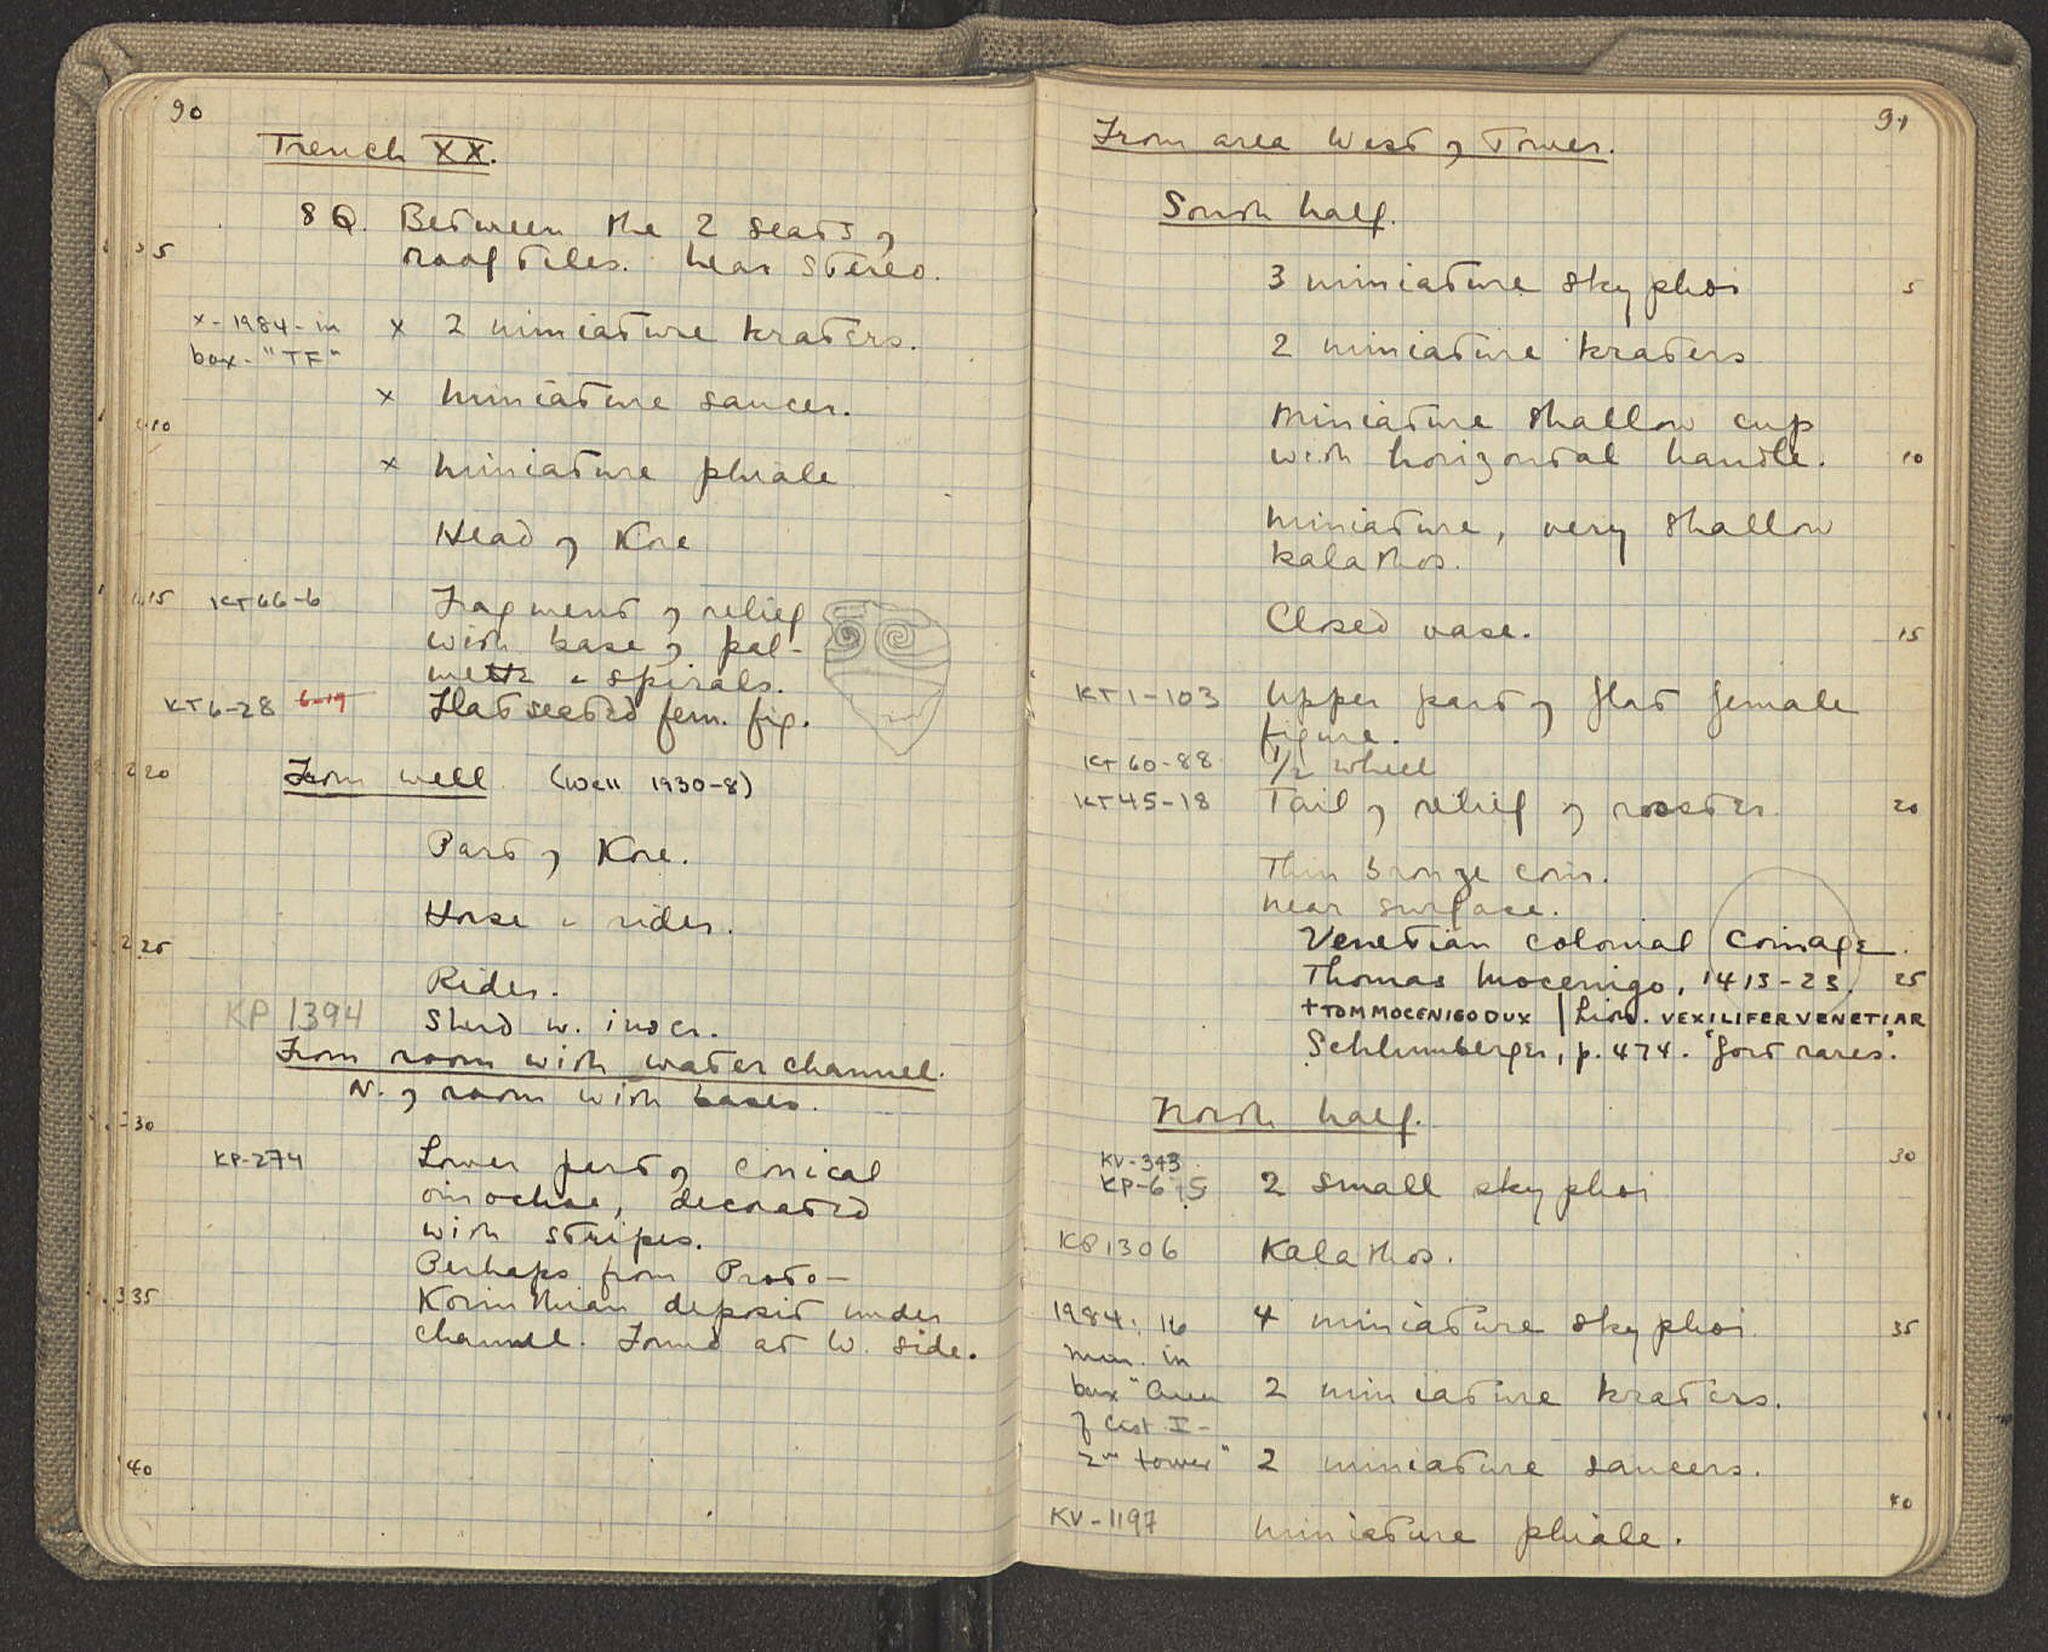 90
Trench XX.
8Q. Between the 2 seats of
5
roof tiles. near stereo.
x - 1984 - in
box - "TF"
x 2 miniature kraters.
x miniature saucer.
10
x miniature phiale
Head of Kore
15
KT66-6
Fragment of relief
with base of pal-
mette & spirals.
KT6-28 6-19
Flat seated fem. fig.
20
From well (Well 1930-8)
Part of Kore.
Horse & rider.
25
Rider.
KP 1394 Sherd w. inscr.
From room with water channel.
N. of room with bases.
30
KP-274 Lower part of conical
oinochoe, decorated
with stripes.
Perhaps from Proto-
35
Korinthian deposit under
channel. Found at W. side.
40
91
From area West of Tower.
South half.
3 miniature skyphoi 5
2 miniature kraters
Miniature shallow cup
with horizontal handle. 10
Miniature, very shallow
kalathos.
Closed vase. 15
KT1-103 Upper part of flat female
figure.
KT60-88 1/2 wheel
KT45-18 Tail of relief of rooster 20
Thin bronze coin.
near surface.
Venetian colonial coinage.
Thomas Mocenigo, 1413-23. 25
+TOMMOCENIGODUX | Lion. VEXILIFERVENETIAR
Schlumberger, p. 474. "fort rares".
North half.
30
KV-343
KP-615 2 small skyphoi
KP1306 Kalathos.
1984: 16 4 miniature skyphoi 35
min. in
box "Area 2 miniature kraters.
of Cist I -
2nd tower" 2 miniature saucers.
40
KV-1197 miniature phiale.